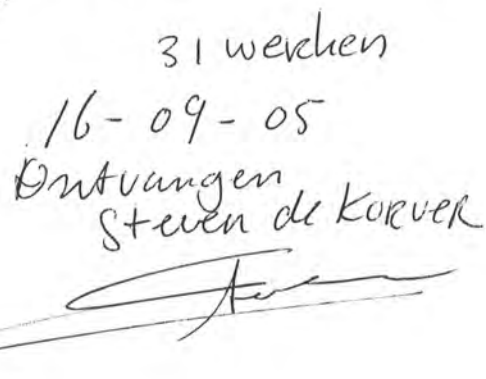 31 werken
16-09-05
Ontvangen
Steven de Korver